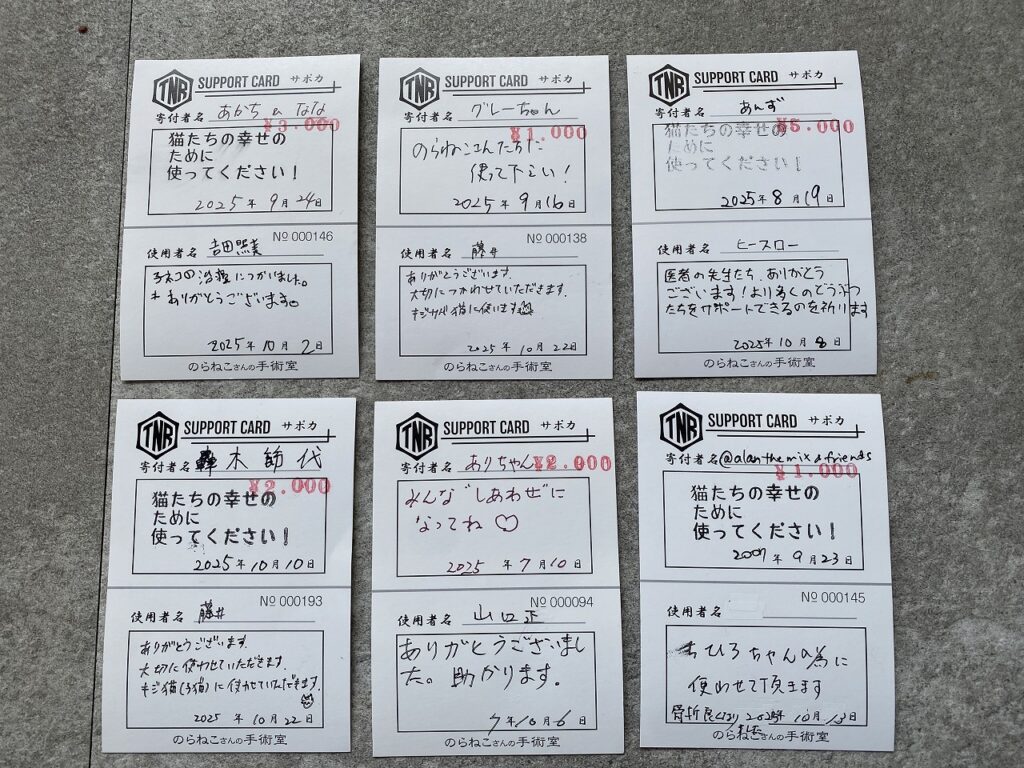 TNR SUPPORT CARD サポカ
寄付者名 あかち & なな
¥3,000
猫たちの幸せの
ために
使ってください！
2025年 9月 24日
№ 000146
使用者名 吉田照美
子ネコの治療につかいました。
ありがとうございます
2025年 10月 2日
のらねこさんの手術室
TNR SUPPORT CARD サポカ
寄付者名 グレーちゃん
¥1,000
のらねこさんたちに
使って下さい！
2025年 9月 16日
№ 000138
使用者名 藤井
ありがとうございます。
大切につかわせていただきます。
キジサバ猫に使います
2025年 10月 22日
のらねこさんの手術室
TNR SUPPORT CARD サポカ
寄付者名 あんず
¥5,000
猫たちの幸せの
ために
使ってください！
2025年 8月 19日
使用者名 ヒースロー
医者の先生たち、ありがとう
ございます！より多くのどうぶつ
たちをサポートできるのを祈ります
2025年 10月 8日
のらねこさんの手術室
TNR SUPPORT CARD サポカ
寄付者名 木節代
¥2,000
猫たちの幸せの
ために
使ってください！
2025年 10月 10日
№ 000193
使用者名 藤井
ありがとうございます。
大切に使わせていただきます。
キジ猫(子猫)に使わせていただきます。
2025年 10月 22日
のらねこさんの手術室
TNR SUPPORT CARD サポカ
寄付者名 ありちゃん
¥2,000
みんな"しあわせ"に
なってね♡
2025年 7月 10日
№ 000094
使用者名 山口正
ありがとうございまし
た。助かります。
7年 10月 6日
のらねこさんの手術室
TNR SUPPORT CARD サポカ
寄付者名 @alanthemix&friends
¥1,000
猫たちの幸せの
ために
使ってください！
2007年 9月 23日
№ 000145
使用者名
ちひろちゃんの為に
使わせて頂きます
2025年 10月 13日
のらねこさんの手術室